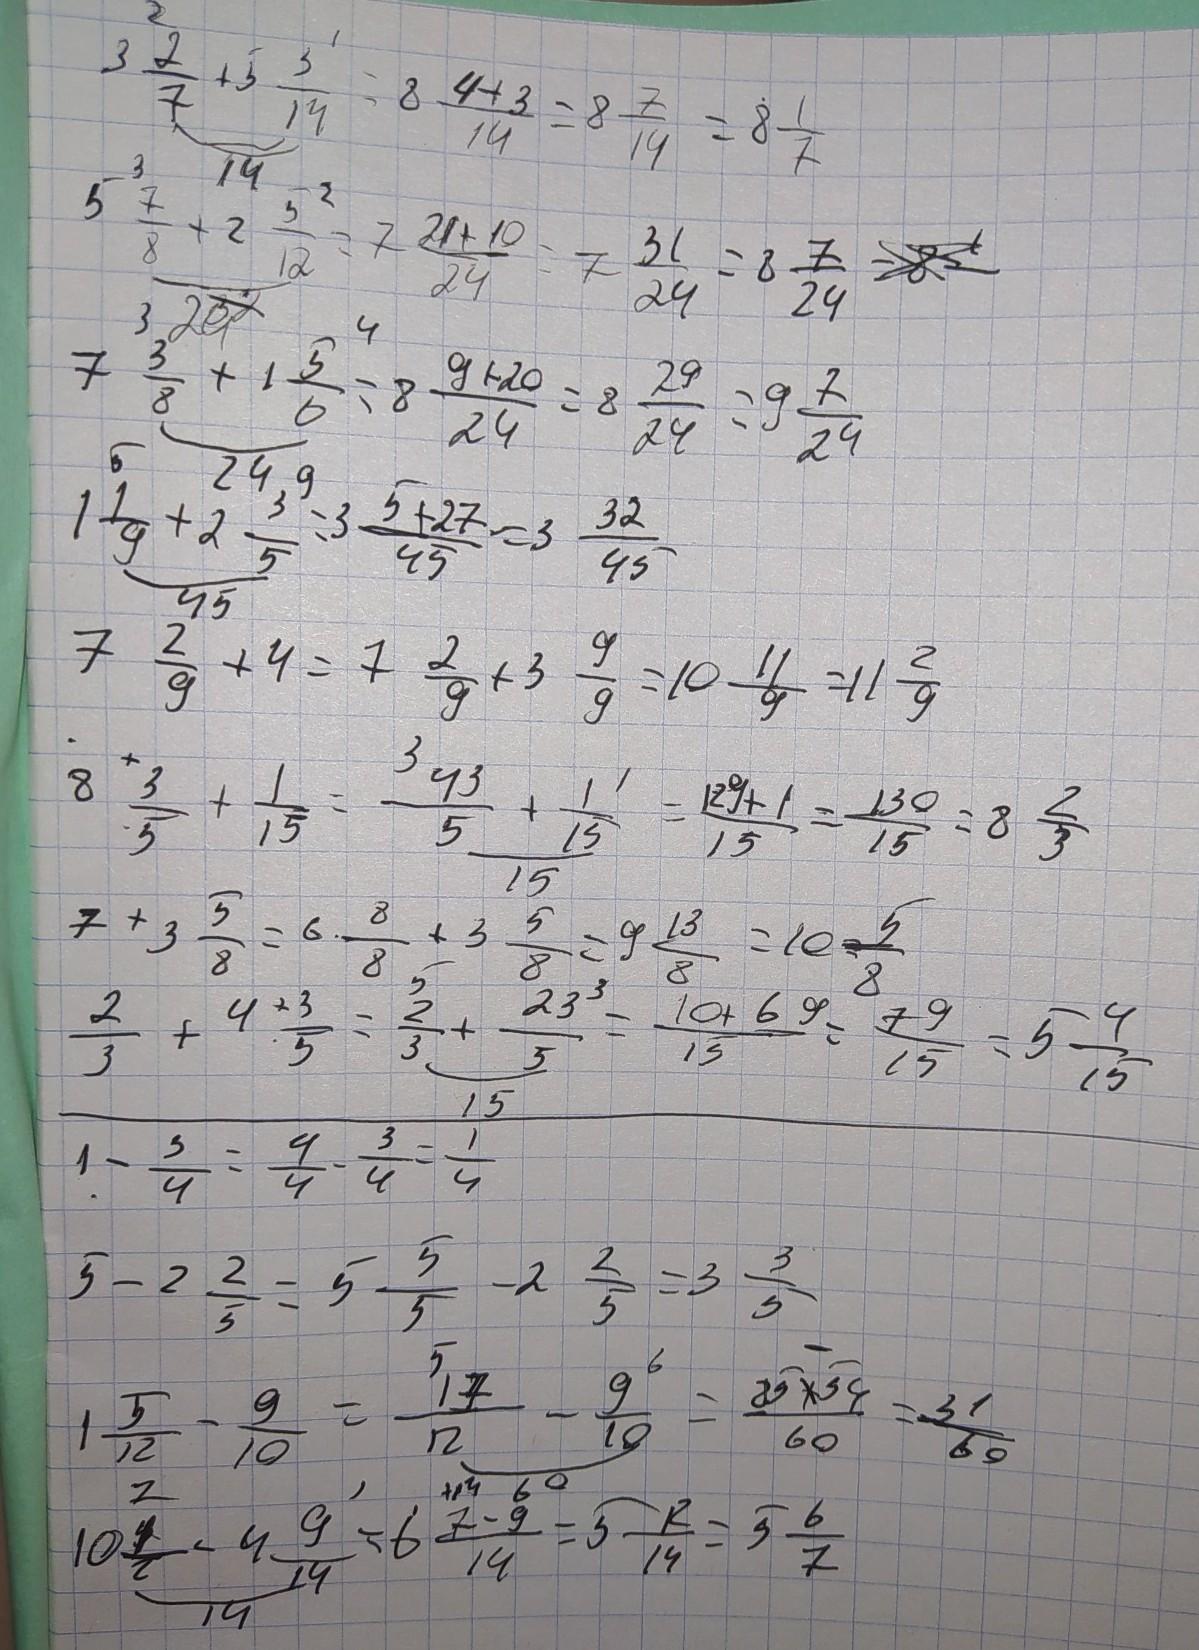 3 2/7 + 5 3/14 = 8 4+3/14 = 8 7/14 = 8 1/7
5 7/8 + 2 5/12 = 7 21+10/24 = 7 31/24 = 8 7/24
7 3/8 + 1 5/6 = 8 9+20/24 = 8 29/24 = 9 7/24
1 1/9 + 2 3/5 = 3 5+27/45 = 3 32/45
7 2/9 + 4 = 7 2/9 + 3 9/9 = 10 11/9 = 11 2/9
8 3/5 + 1/15 = 43/5 + 1/15 = 129+1/15 = 130/15 = 8 2/3
7 + 3 5/8 = 6 8/8 + 3 5/8 = 9 13/8 = 10 5/8
2/3 + 4 3/5 = 2/3 + 23/5 = 10+69/15 = 79/15 = 5 4/15
1 - 3/4 = 4/4 - 3/4 = 1/4
5 - 2 2/5 = 5 5/5 - 2 2/5 = 3 3/5
1 5/12 - 9/10 = 17/12 - 9/10 = 85-54/60 = 31/60
10 1/2 - 4 9/14 = 6 7-9/14 = 5 12/14 = 5 6/7